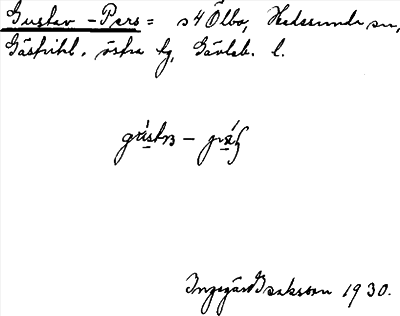 Gustav-Pers = s4 Ölbo, Hedesunda sn,
Gästrikl. östra tg, Gävleb. l.
Ingegärd Isaksson 1930.